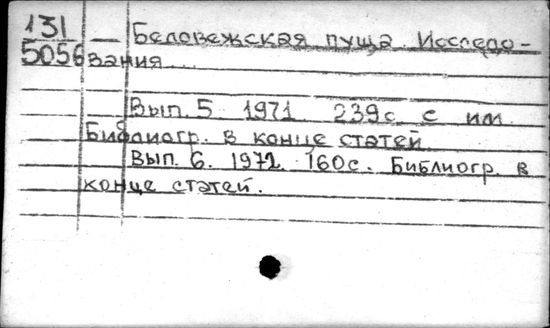 131
5056
— Беловежская пуща. Исследо-
вания...
Вып. 5 1971 239с с им.
Библиогр. в конце статей
Вып. 6. 1972. 160с. Библиогр. в
конце статей.